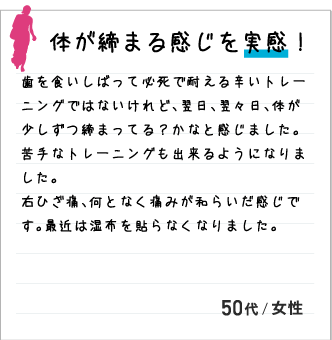 体が締まる感じを実感！
歯を食いしばって必死で耐える辛いトレー
ニングではないけれど、翌日、翌々日、体が
少しずつ締まってる？かなと感じました。
苦手なトレーニングも出来るようになりま
した。
右ひざ痛、何となく痛みが和らいだ感じで
す。最近は湿布を貼らなくなりました。
50代 / 女性